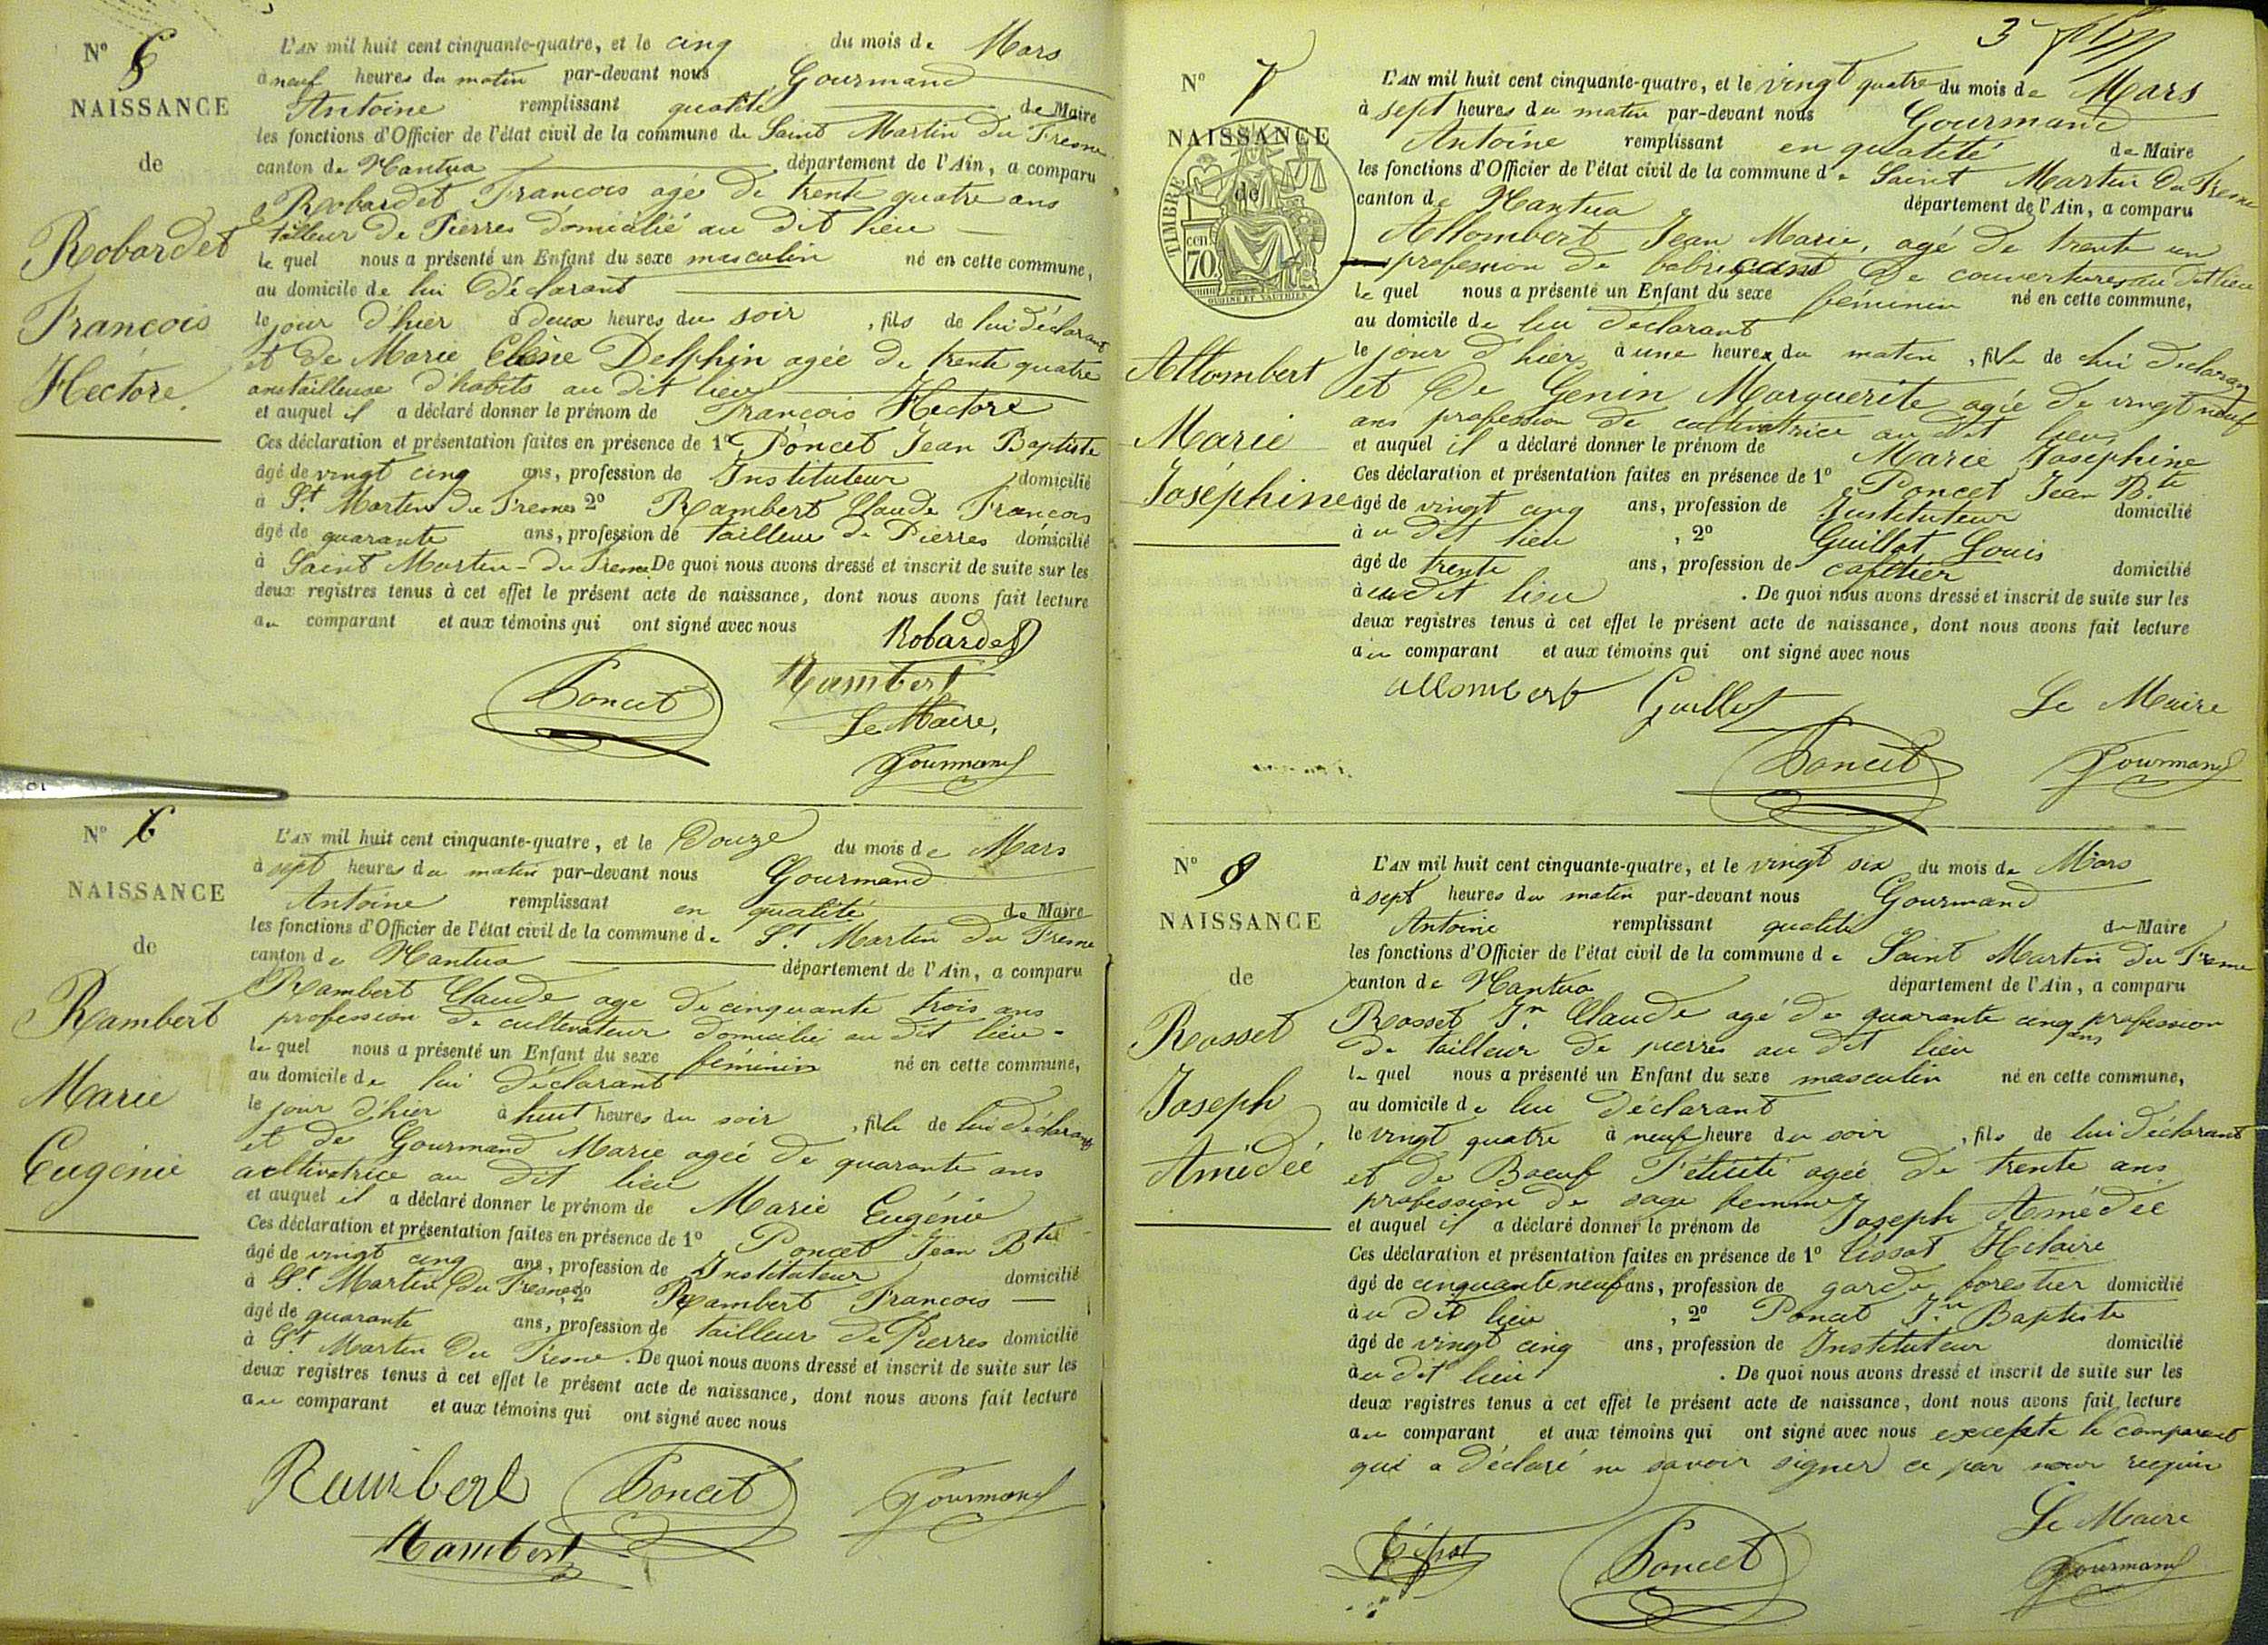 N° 5
NAISSANCE
de
Robardet
François
Hectore.
L'AN mil huit cent cinquante-quatre, et le cinq du mois de Mars
à neuf heures du matin par-devant nous Gourmand
Antoine remplissant qualité de Maire
les fonctions d'Officier de l'état civil de la commune de Saint Martin du Fresne
canton de Nantua département de l'Ain, a comparu
Robardet François agé de trente quatre ans
tailleur de Pierres domicilié au dit lieu
le quel nous a présenté un Enfant du sexe masculin né en cette commune,
au domicile de lui Déclarant
le jour d'hier à deux heures du soir , fils de lui déclarant
et de Marie Delphin agée de trente quatre
ans tailleuse d'habits au dit lieu
et auquel il a déclaré donner le prénom de François Hectore
Ces déclaration et présentation faites en présence de 1° Poncet Jean Baptiste
âgé de vingt cinq ans, profession de Instituteur domicilié
à St Martin du Fresne 2° Rambert Claude François
âgé de quarante ans, profession de tailleur de Pierres domicilié
à Saint Martin-du Fresne. De quoi nous avons dressé et inscrit de suite sur les
deux registres tenus à cet effet le présent acte de naissance, dont nous avons fait lecture
au comparant et aux témoins qui ont signé avec nous
Robardet
Poncet Rambert
Le Maire,
Gourmand
N° 6
NAISSANCE
de
Rambert
Marie
Eugénie
L'AN mil huit cent cinquante-quatre, et le Douze du mois de Mars
à sept heures du matin par-devant nous Gourmand
Antoine remplissant en qualité de Maire
les fonctions d'Officier de l'état civil de la commune de St Martin du Fresne
canton de Nantua département de l'Ain, a comparu
Rambert Claude age de cinquante trois ans
profession de cultivateur domicilié au dit lieu
le quel nous a présenté un Enfant du sexe féminin né en cette commune,
au domicile de lui déclarant
le jour d'hier à huit heures du soir , fille de lui déclarant
et de Gourmand Marie agée de quarante ans
cultivatrice au dit lieu
et auquel il a déclaré donner le prénom de Marie Eugénie
Ces déclaration et présentation faites en présence de 1° Poncet Jean Bte
âgé de vingt cinq ans, profession de Instituteur domicilié
à St Martin du Fresne, 2° Rambert François
âgé de quarante ans, profession de tailleur de Pierres domicilié
à St Martin du Fresne. De quoi nous avons dressé et inscrit de suite sur les
deux registres tenus à cet effet le présent acte de naissance, dont nous avons fait lecture
au comparant et aux témoins qui ont signé avec nous
Rambert Poncet Gourmand
Rambert
3
N° 7
NAISSANCE
de
TIMBRE
cen
70
OUDINE ET VAUTHIER
Allombert
Marie
Joséphine
L'AN mil huit cent cinquante-quatre, et le vingt quatre du mois de Mars
à sept heures du matin par-devant nous Gourmand
Antoine remplissant en qualité de Maire
les fonctions d'Officier de l'état civil de la commune de Saint Martin du Fresne
canton de Nantua département de l'Ain, a comparu
Allombert Jean Marie, agé de trente un
profession de fabricant de couvertures au dit lieu
le quel nous a présenté un Enfant du sexe féminin né en cette commune,
au domicile de lui declarant
le jour d'hier à une heure du matin , fille de lui declarant
et de Genin Marguerite agée de vingt neuf
ans profession de cultivatrice au dit lieu
et auquel il a déclaré donner le prénom de Marie Joséphine
Ces déclaration et présentation faites en présence de 1° Poncet Jean Bte
âgé de vingt cinq ans, profession de Instituteur domicilié
à u dit lieu , 2° Guillot Louis
âgé de trente ans, profession de cafetier domicilié
à u dit lieu . De quoi nous avons dressé et inscrit de suite sur les
deux registres tenus à cet effet le présent acte de naissance, dont nous avons fait lecture
au comparant et aux témoins qui ont signé avec nous
allombert Guillot Le Maire
Poncet Gourmand
N° 8
NAISSANCE
de
Rosset
Joseph
Amédée
L'AN mil huit cent cinquante-quatre, et le vingt six du mois de Mars
à sept heures du matin par-devant nous Gourmand
Antoine remplissant qualité de Maire
les fonctions d'Officier de l'état civil de la commune de Saint Martin du Fresne
canton de Nantua département de l'Ain, a comparu
Rosset Jn Claude agé de quarante cinq ans profession
de tailleur de pierres au dit lieu
le quel nous a présenté un Enfant du sexe masculin né en cette commune,
au domicile de lui déclarant
le vingt quatre à neuf heure du soir , fils de lui déclarant
et de Boeuf Félicité agée de trente ans
profession de sage femme
et auquel il a déclaré donner le prénom de Joseph Amédée
Ces déclaration et présentation faites en présence de 1° Tissot Hilaire
âgé de cinquante neuf ans, profession de garde forestier domicilié
à u dit lieu , 2° Poncet Jn Baptiste
âgé de vingt cinq ans, profession de Instituteur domicilié
à u dit lieu . De quoi nous avons dressé et inscrit de suite sur les
deux registres tenus à cet effet le présent acte de naissance, dont nous avons fait lecture
au comparant et aux témoins qui ont signé avec nous excepté le comparant
qui a déclaré ne savoir signer ce par nous requis
Le Maire
Poncet Gourmand